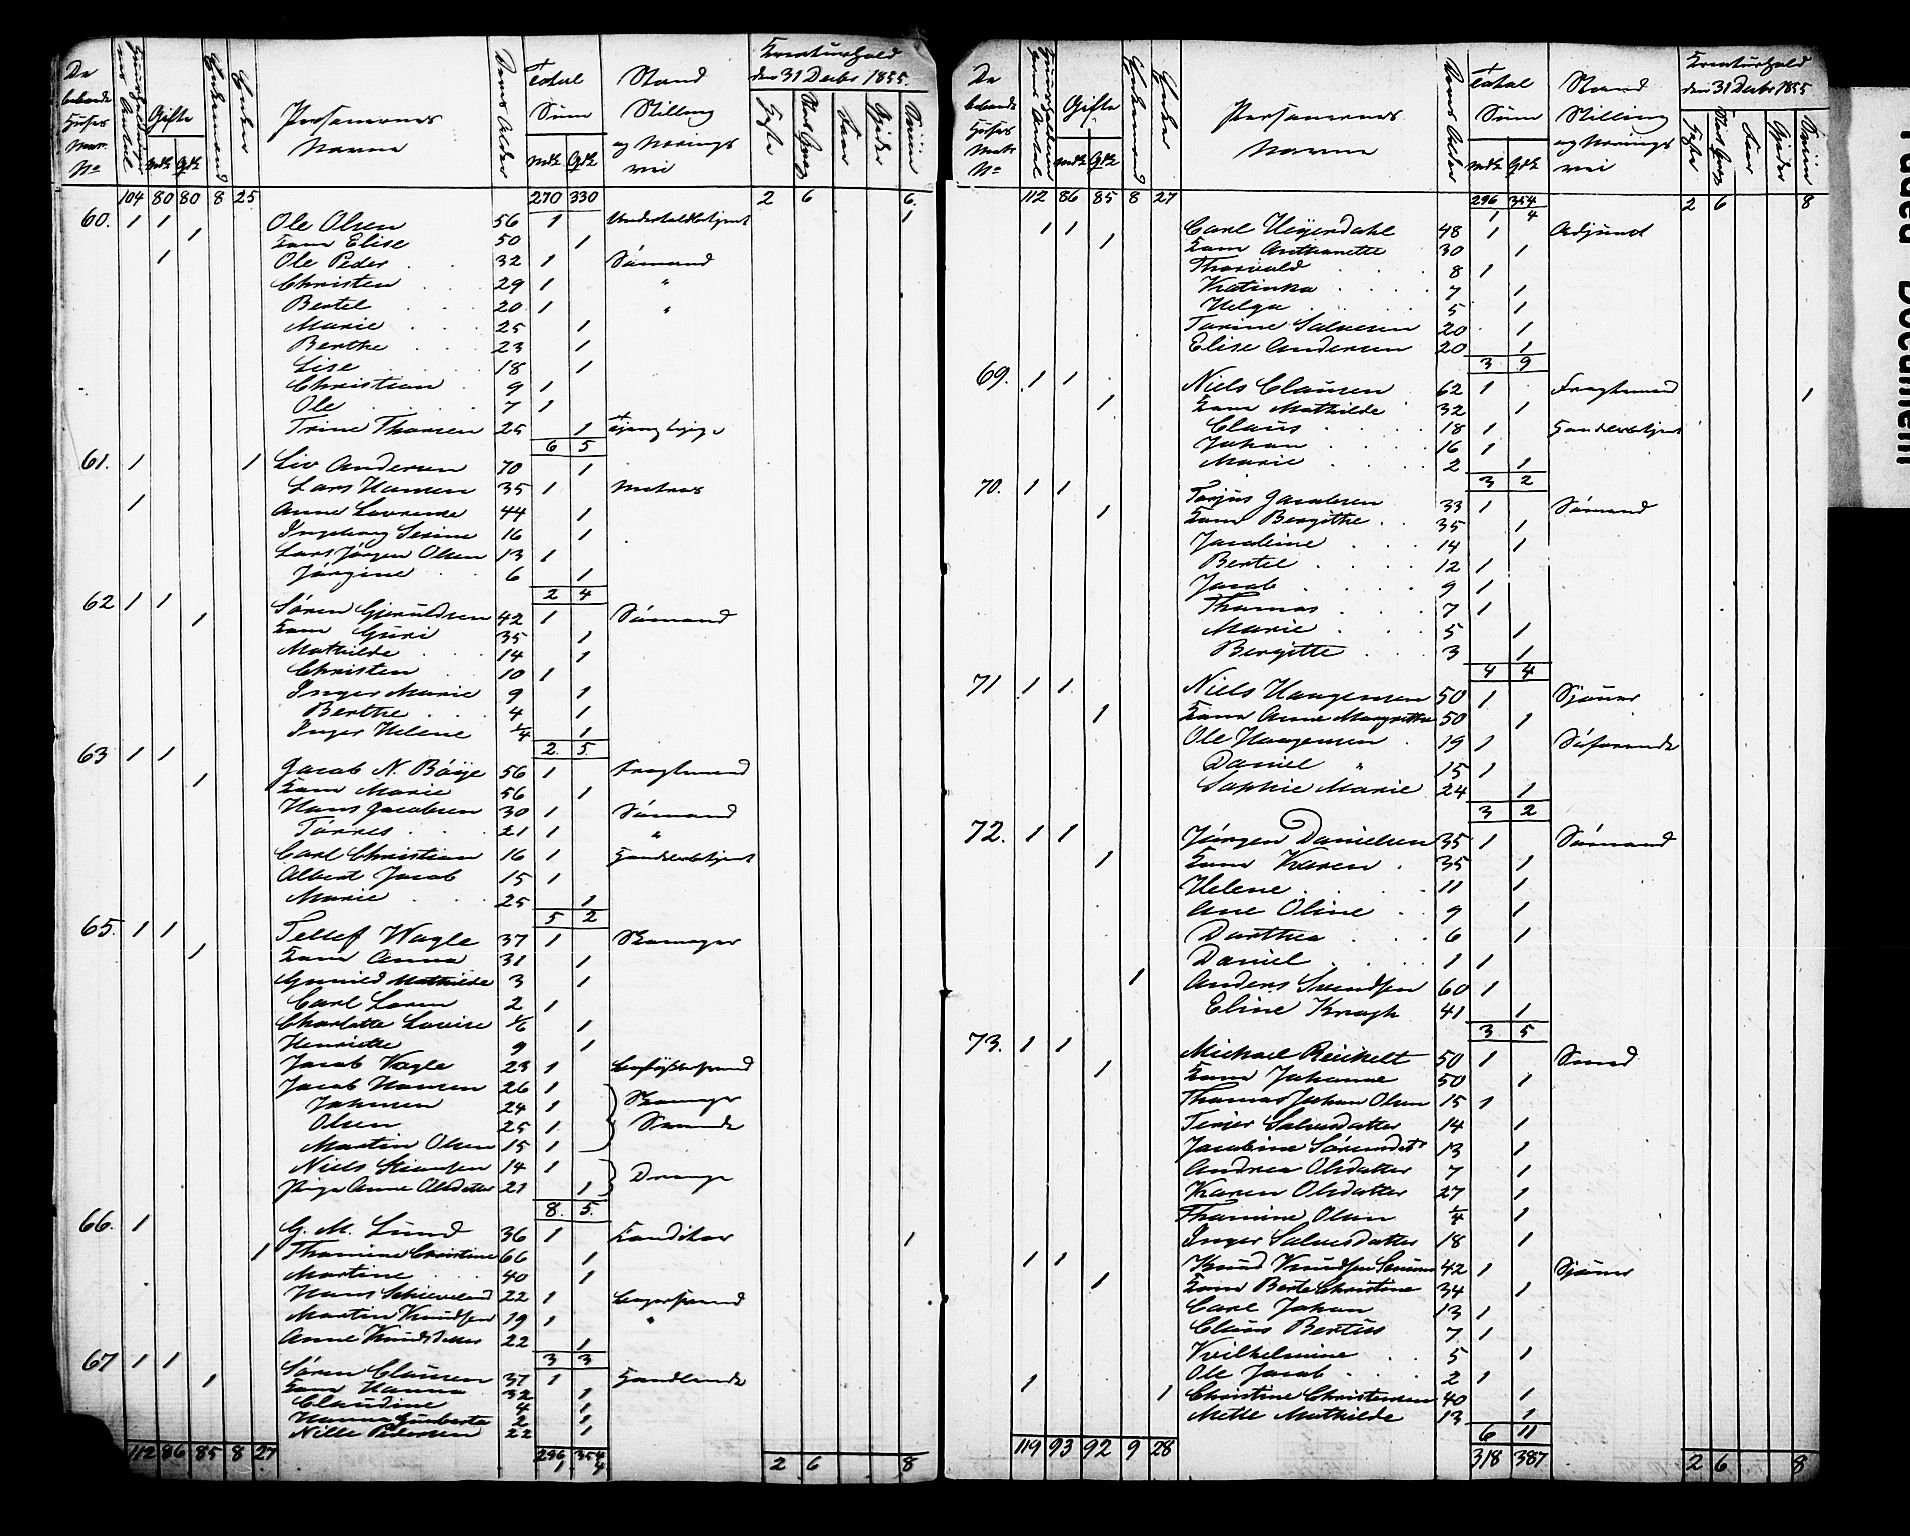 De beboede Huses Matr. No | Huusholdningernes Antal | Gifte Mdk Qdk | Enkemænd | Enker | Personernes Navne | Deres Alder | Total Sum Mdk Qdk | Stand Stilling og Nærings vei | Kreaturhold den 31 Decbr 1855. Heste | Stort Qvæg | Faar | Gjeder | Sviin
104 80 80 8 25 270 330 2 6 6
60. 1 1 Ole Olsen 56 1 1
1 Kone Elise 50 1
1 Ole Peder 32 1 Sømand
Christen 29 1 "
Bertel 20 1 "
Marie 25 1
Berthe 23 1
Lise 18 1
Christian 9 1
Ole 7 1
Trine Thomsen 25 1
6 5
61. 1 1 Liv Andersen 70 1
Lars Hansen 35 1 Matros
1 Anne Lovrense 44 1
Ingeborg Serine 16 1
Lars Jørgen Olsen 13 1
Jørgine 6 1
2 4
62 1 1 Søren Gjeruldsen 42 1 Sømand
1 Kone Guri 35 1
Mathilde 14 1
Christen 10 1
Inger Marie 9 1
Berthe 4 1
Inger Helene 1/4 1
2. 5.
63 1 1 Jacob N. Bøye 56 1 Fragtmand
1 Kone Marie 56 1
Hans Jacobsen 30 1 Sømand
Tørres 21 1 "
Carl Christian 16 1 Handelsbetjent
Albert Jacob 15 1
Marie 25 1
5 2
65. 1 1 Tellef Wagle 37 1 Skomager
1 Kone Anna 31 1
Gunild Mathilde 3 1
Carl Loren 2 1
Charlotte Lovise 1/6 1
Henriette 9 1
Jacob Vagle 23 1
Jacob Hansen 26 1 Skomager
Johnsen 24 1 Svende
Olsen 25 1
Martin Olsen 15 1
Niels 14 1 Drenge
Pige Anne Olsdatter 21 1
8. 5.
66. 1 G. M. Lund 36 1 Konditor 1
1 Thomine Christine 66 1
Martine 40 1
Hans 22 1
Martin Knudsen 19 1 "
Anne Knudsdatter 22 1
3 3
67 1 1 Søren Clausen 37 1 Handlende
1 Kone Hanna 32 1
Claudine 4 1
Hanna Gunberta 2 1
Nille Pedersen 22 1
112 86 85 8 27 296 354 2 6 8
1 4
De beboede Huses Matr. No | Huusholdningernes Antal | Gifte Mdk Qdk | Enkemænd | Enker | Personernes Navne | Deres Alder | Total Sum Mdk Qdk | Stand Stilling og Nærings vei | Kreaturhold den 31 Decbr 1855 Heste | Stort Qvæg | Faar | Gjeder | Sviin
112 86 85 8 27 296 354 2 6 8
1 4
1 1 Carl Heyerdahl 48 1 Adjunct
1 Kone Anthonette 30 1
Thorvald 8 1
Katinka 7 1
Helga 5 1
Tarine Salvesen 20 1
Elise Andersen 20 1
3 9
69. 1 1 Niels Clausen 62 1 Fragtmand 1
1 Kone Mathilde 32 1
Claus 18 1 Handelsbetjent
Johan 16 1
Marie 2 1
3 2
70. 1 1 Torjus Jacobsen 33 1 Sømand
1 Kone Bergithe 35 1
Jacobine 14 1
Bertel 12 1
Jacob 9 1
Thomas 7 1
Marie 5 1
Bergitte 3 1
4 4
71 1 1 Niels Haagensen 50 1 Sjouer
1 Kone Anne Margrethe 50 1
Ole Haagensen 19 1 Søfarende
Daniel " 15 1
Sophie Marie 24 1
3 2
72. 1 1 Jørgen Danielsen 35 1 Sømand
1 Kone Karen 35 1
Helene 11 1
Ane Oline 9 1
Dorthea 6 1
Daniel 1 1
1 Anders Svendsen 60 1
Eline Kragh 41 1
3 5
73. 1 1 Michael Reichelt 50 1 Smed
1 Kone Johanne 50 1
Thomas Johan Olsen 15 1
Salvesdatter 14 1
Jacobine Sørensdtr 13 1
Andrea Olsdatter 7 1
Karen Olsdatter 27 1
Thomine Olsen 1/4 1
Inger Salvesdatter 18 1
1 1 Knud Knudsen 42 1 Sjouer
1 Kone Berte Christine 34 1
Carl Johan 13 1
Claus Bertus 7 1
Vilhelmine 5 1
Ole Jacob 2 1
1 1 Christine Christensen 40 1
Mette Mathilde 13 1
6 11
119 93 92 9 28 318 387 2 6 8